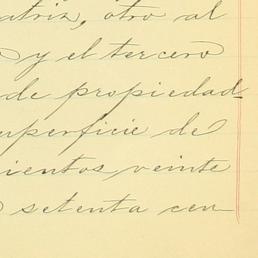 atriz, otro al
y el tercero
de propiedad
uperficie de
ientos veinte
setenta cen